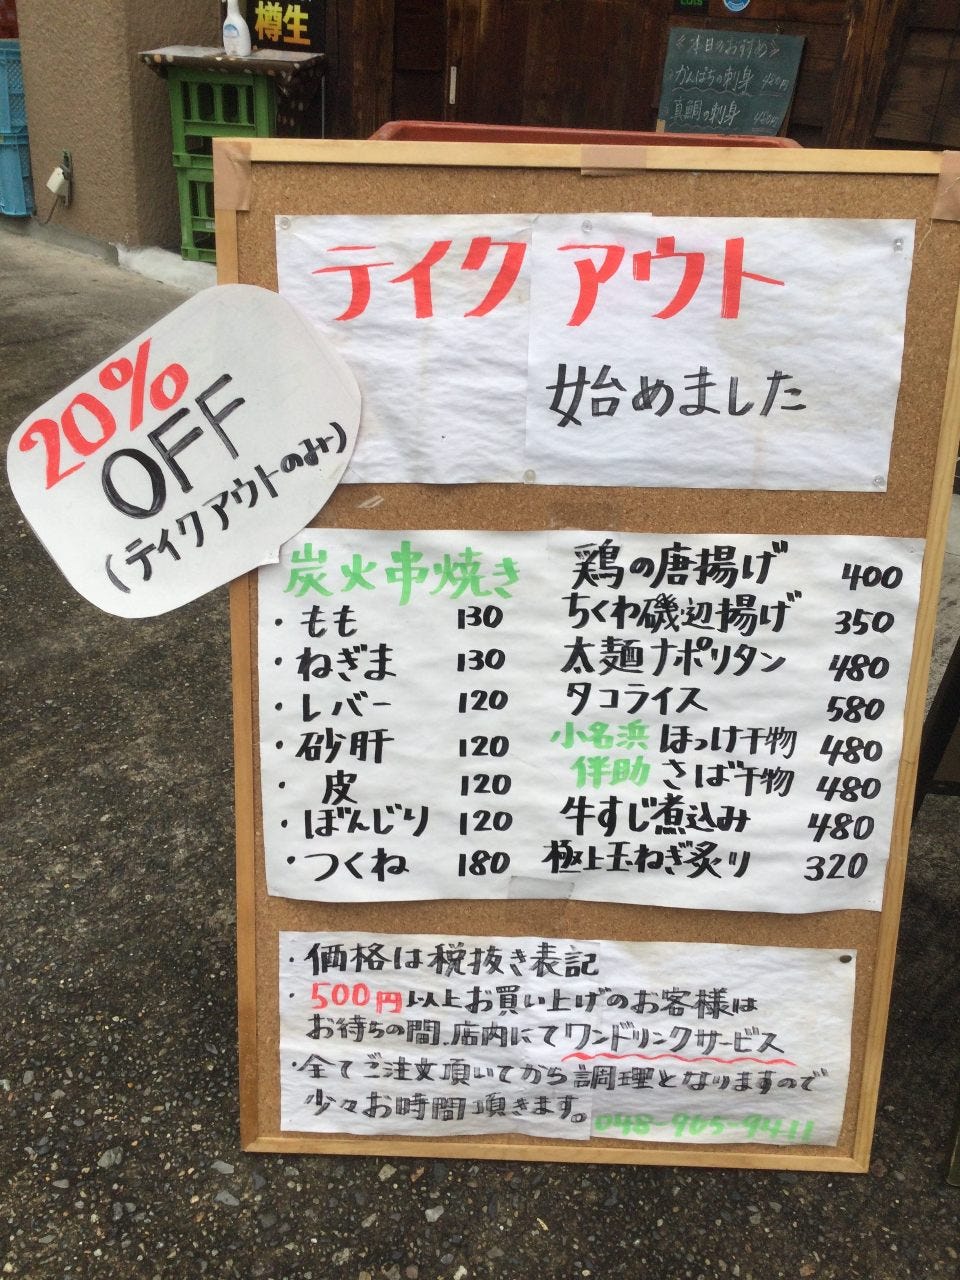 樽生
≪本日のおすすめ≫
・かんぱちの刺身 480円
・真鯛の刺身 480円
テイクアウト
始めました
20%
OFF
(テイクアウトのみ)
炭火串焼き
・もも 130
・ねぎま 130
・レバー 120
・砂肝 120
・皮 120
・ぼんじり 120
・つくね 180
鶏の唐揚げ 400
ちくわ磯辺揚げ 350
太麺ナポリタン 480
タコライス 580
小名浜 ほっけ干物 480
伴助 さば干物 480
牛すじ煮込み 480
極上玉ねぎ炙り 320
・価格は税抜き表記
・500円以上お買い上げのお客様は
お待ちの間、店内にてワンドリンクサービス
・全てご注文頂いてから調理となりますので
少々お時間頂きます。
048-965-9411